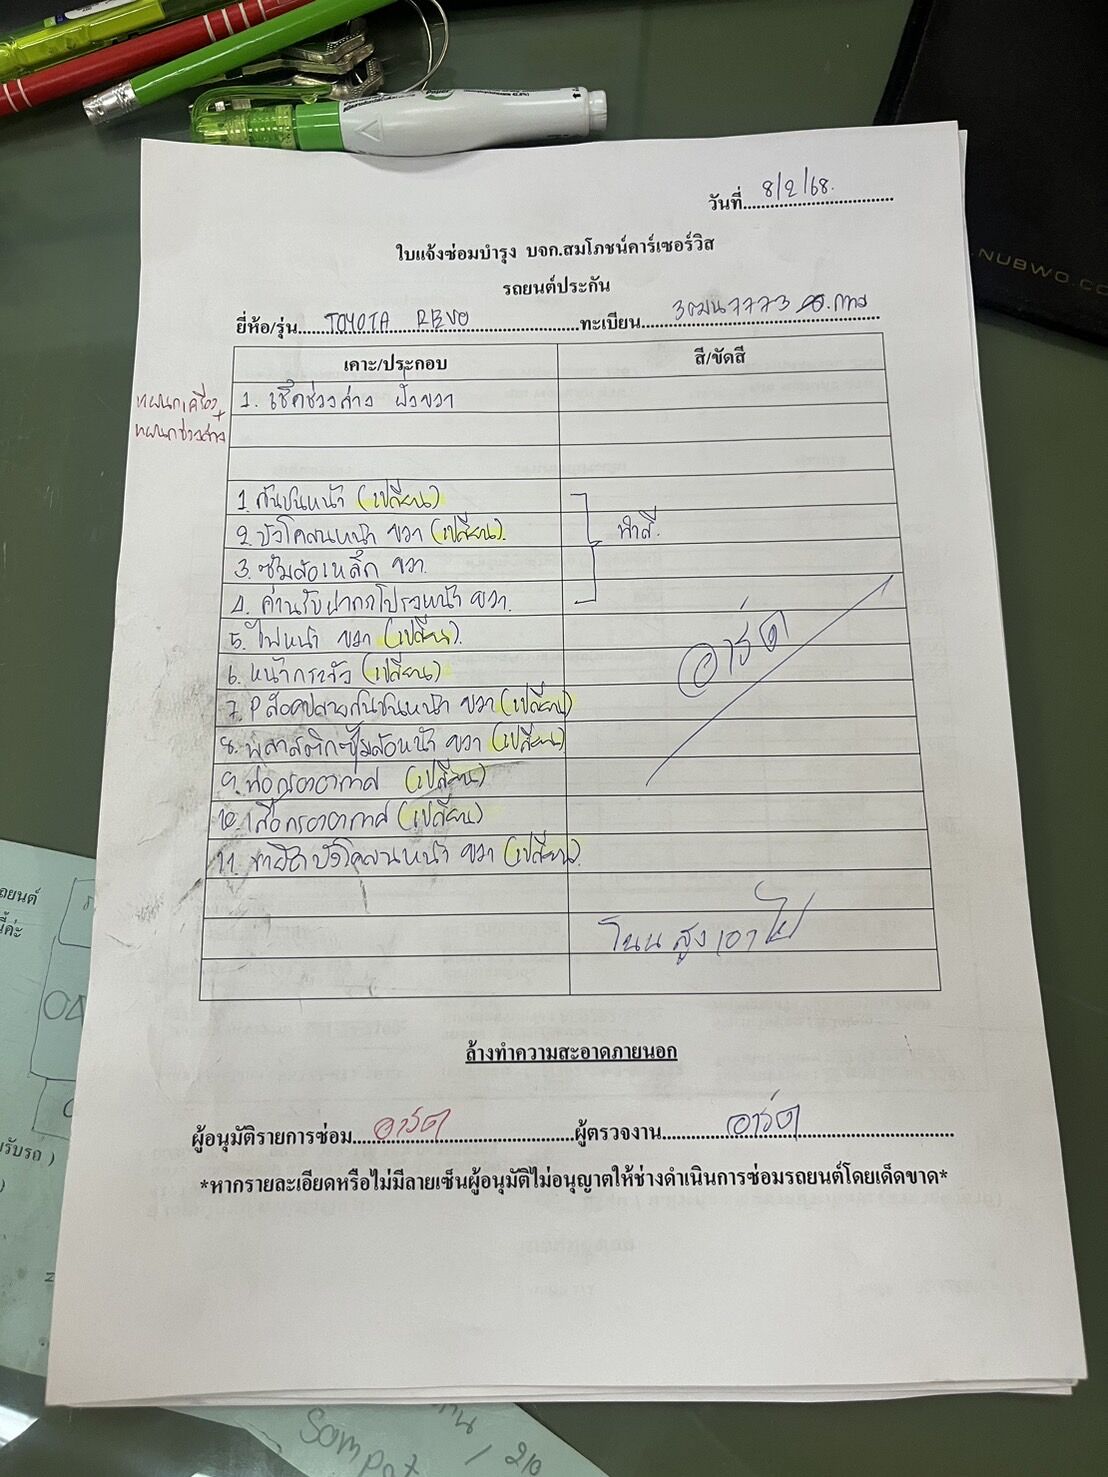 วันที่ 8/2/68.
ใบแจ้งซ่อมบำรุง บจก.สมโภชน์คาร์เซอร์วิส
รถยนต์ประกัน
ยี่ห้อ/รุ่น TOYOTA REVO ทะเบียน 3ฒน7773 กทม
เคาะ/ประกอบ สี/ขัดสี
แผนกเครื่อง +
แผนกช่วงล่าง
1. เช็คช่วงล่าง ฝั่งขวา
1. กันชนหน้า (เปลี่ยน)
2. บังโคลนหน้า ขวา (เปลี่ยน).
ทำสี.
3. ซุ้มล้อเหล็ก ขวา.
4. คานรับฝากระโปรงหน้า ขวา.
5. ไฟหน้า ขวา (เปลี่ยน).
อาร์ต
6. หน้ากระจัง (เปลี่ยน)
7. Pล็อคปลายกันชนหน้า ขวา (เปลี่ยน)
8. พลาสติกซุ้มล้อหน้า ขวา (เปลี่ยน)
9. ท่อกรองอากาศ (เปลี่ยน)
10. เสื้อกรองอากาศ (เปลี่ยน)
11. ขายึดบังโคลนหน้า ขวา (เปลี่ยน).
โนนสูงเอาไป
ล้างทำความสะอาดภายนอก
ผู้อนุมัติรายการซ่อม อาร์ต ผู้ตรวจงาน อาร์ต
*หากรายละเอียดหรือไม่มีลายเซ็นผู้อนุมัติไม่อนุญาตให้ช่างดำเนินการซ่อมรถยนต์โดยเด็ดขาด*
NUBWO.CO
รถยนต์
นี้ค่ะ
นรับรถ )
Sompot
/ 210